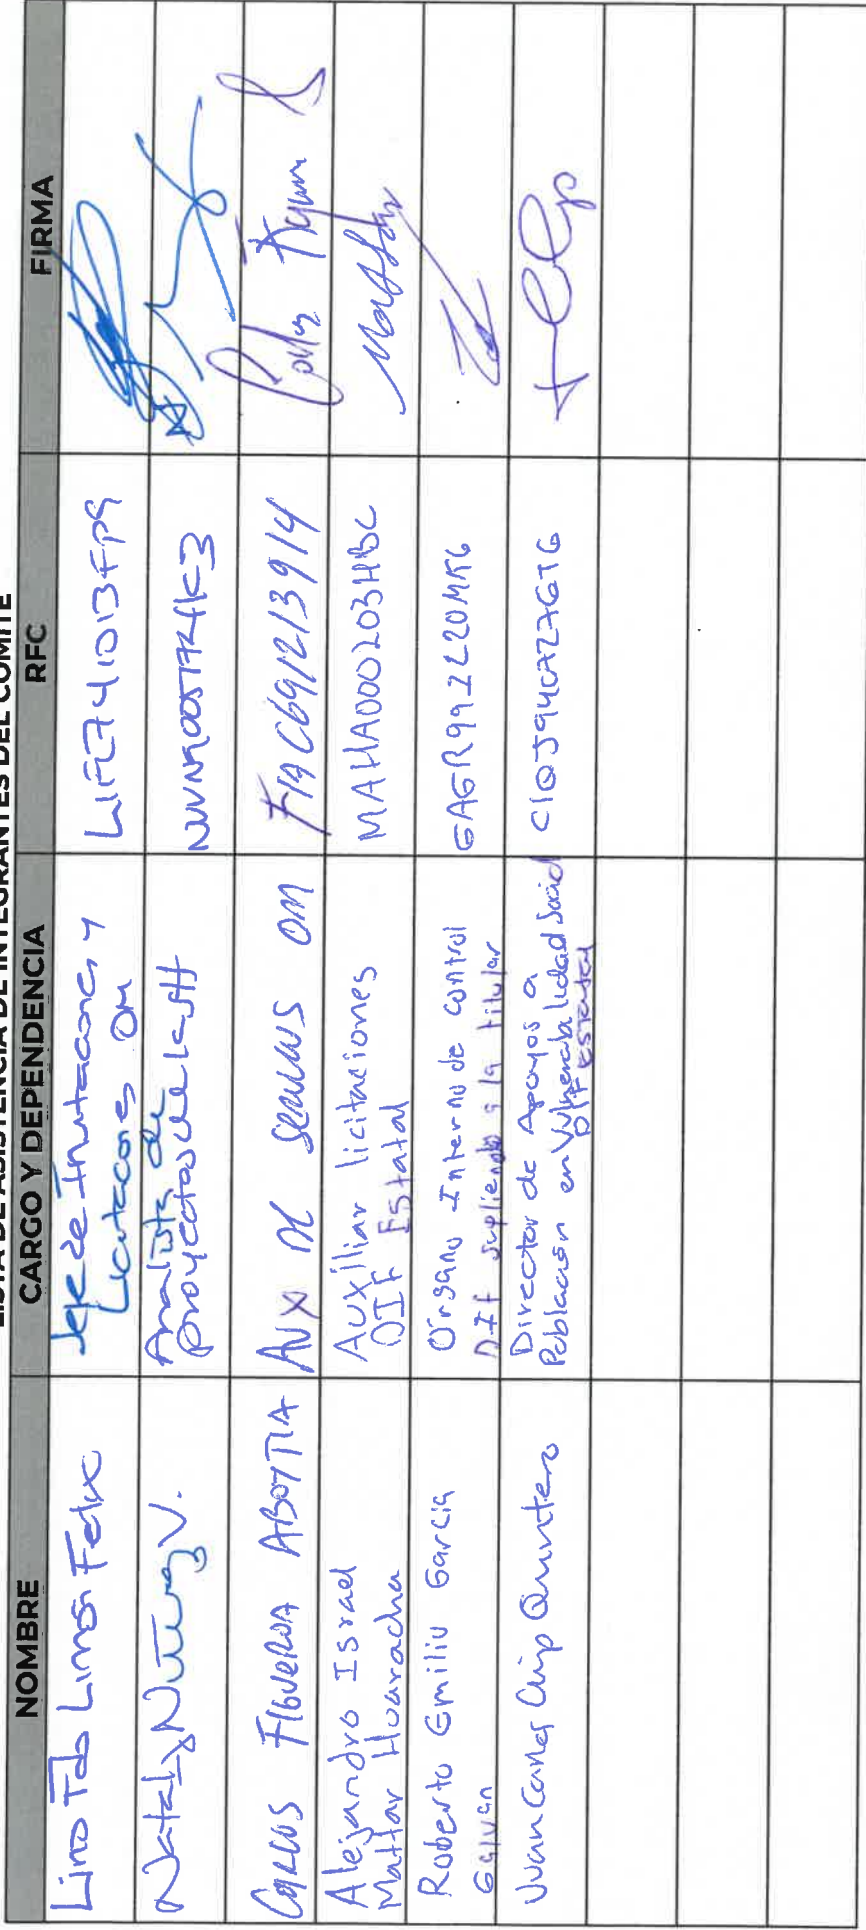 LISTA DE ASISTENCIA DE INTEGRANTES DEL COMITÉ
NOMBRE CARGO Y DEPENDENCIA RFC FIRMA
Lino Fdo Limón Felix
Jefe de Invitaciones y
Licitaciones OM
LIFL741013FP9
Nataly Nuñez V.
Analista de
proyectos de la SH
Carlos Figueroa ABOYTIA
Aux de servicios OM
FIAC691213914
Alejandro Israel
Mattar Huaracha
Auxiliar licitaciones
DIF Estatal
MAHA000203HBC
Roberto Emilio Garcia
Galvan
Órgano Interno de control
DIF supliendo a la titular
Juan Carlos Chip Quintero
Director de Apoyos a
Población en Vulnerabilidad Social
DIF Estatal